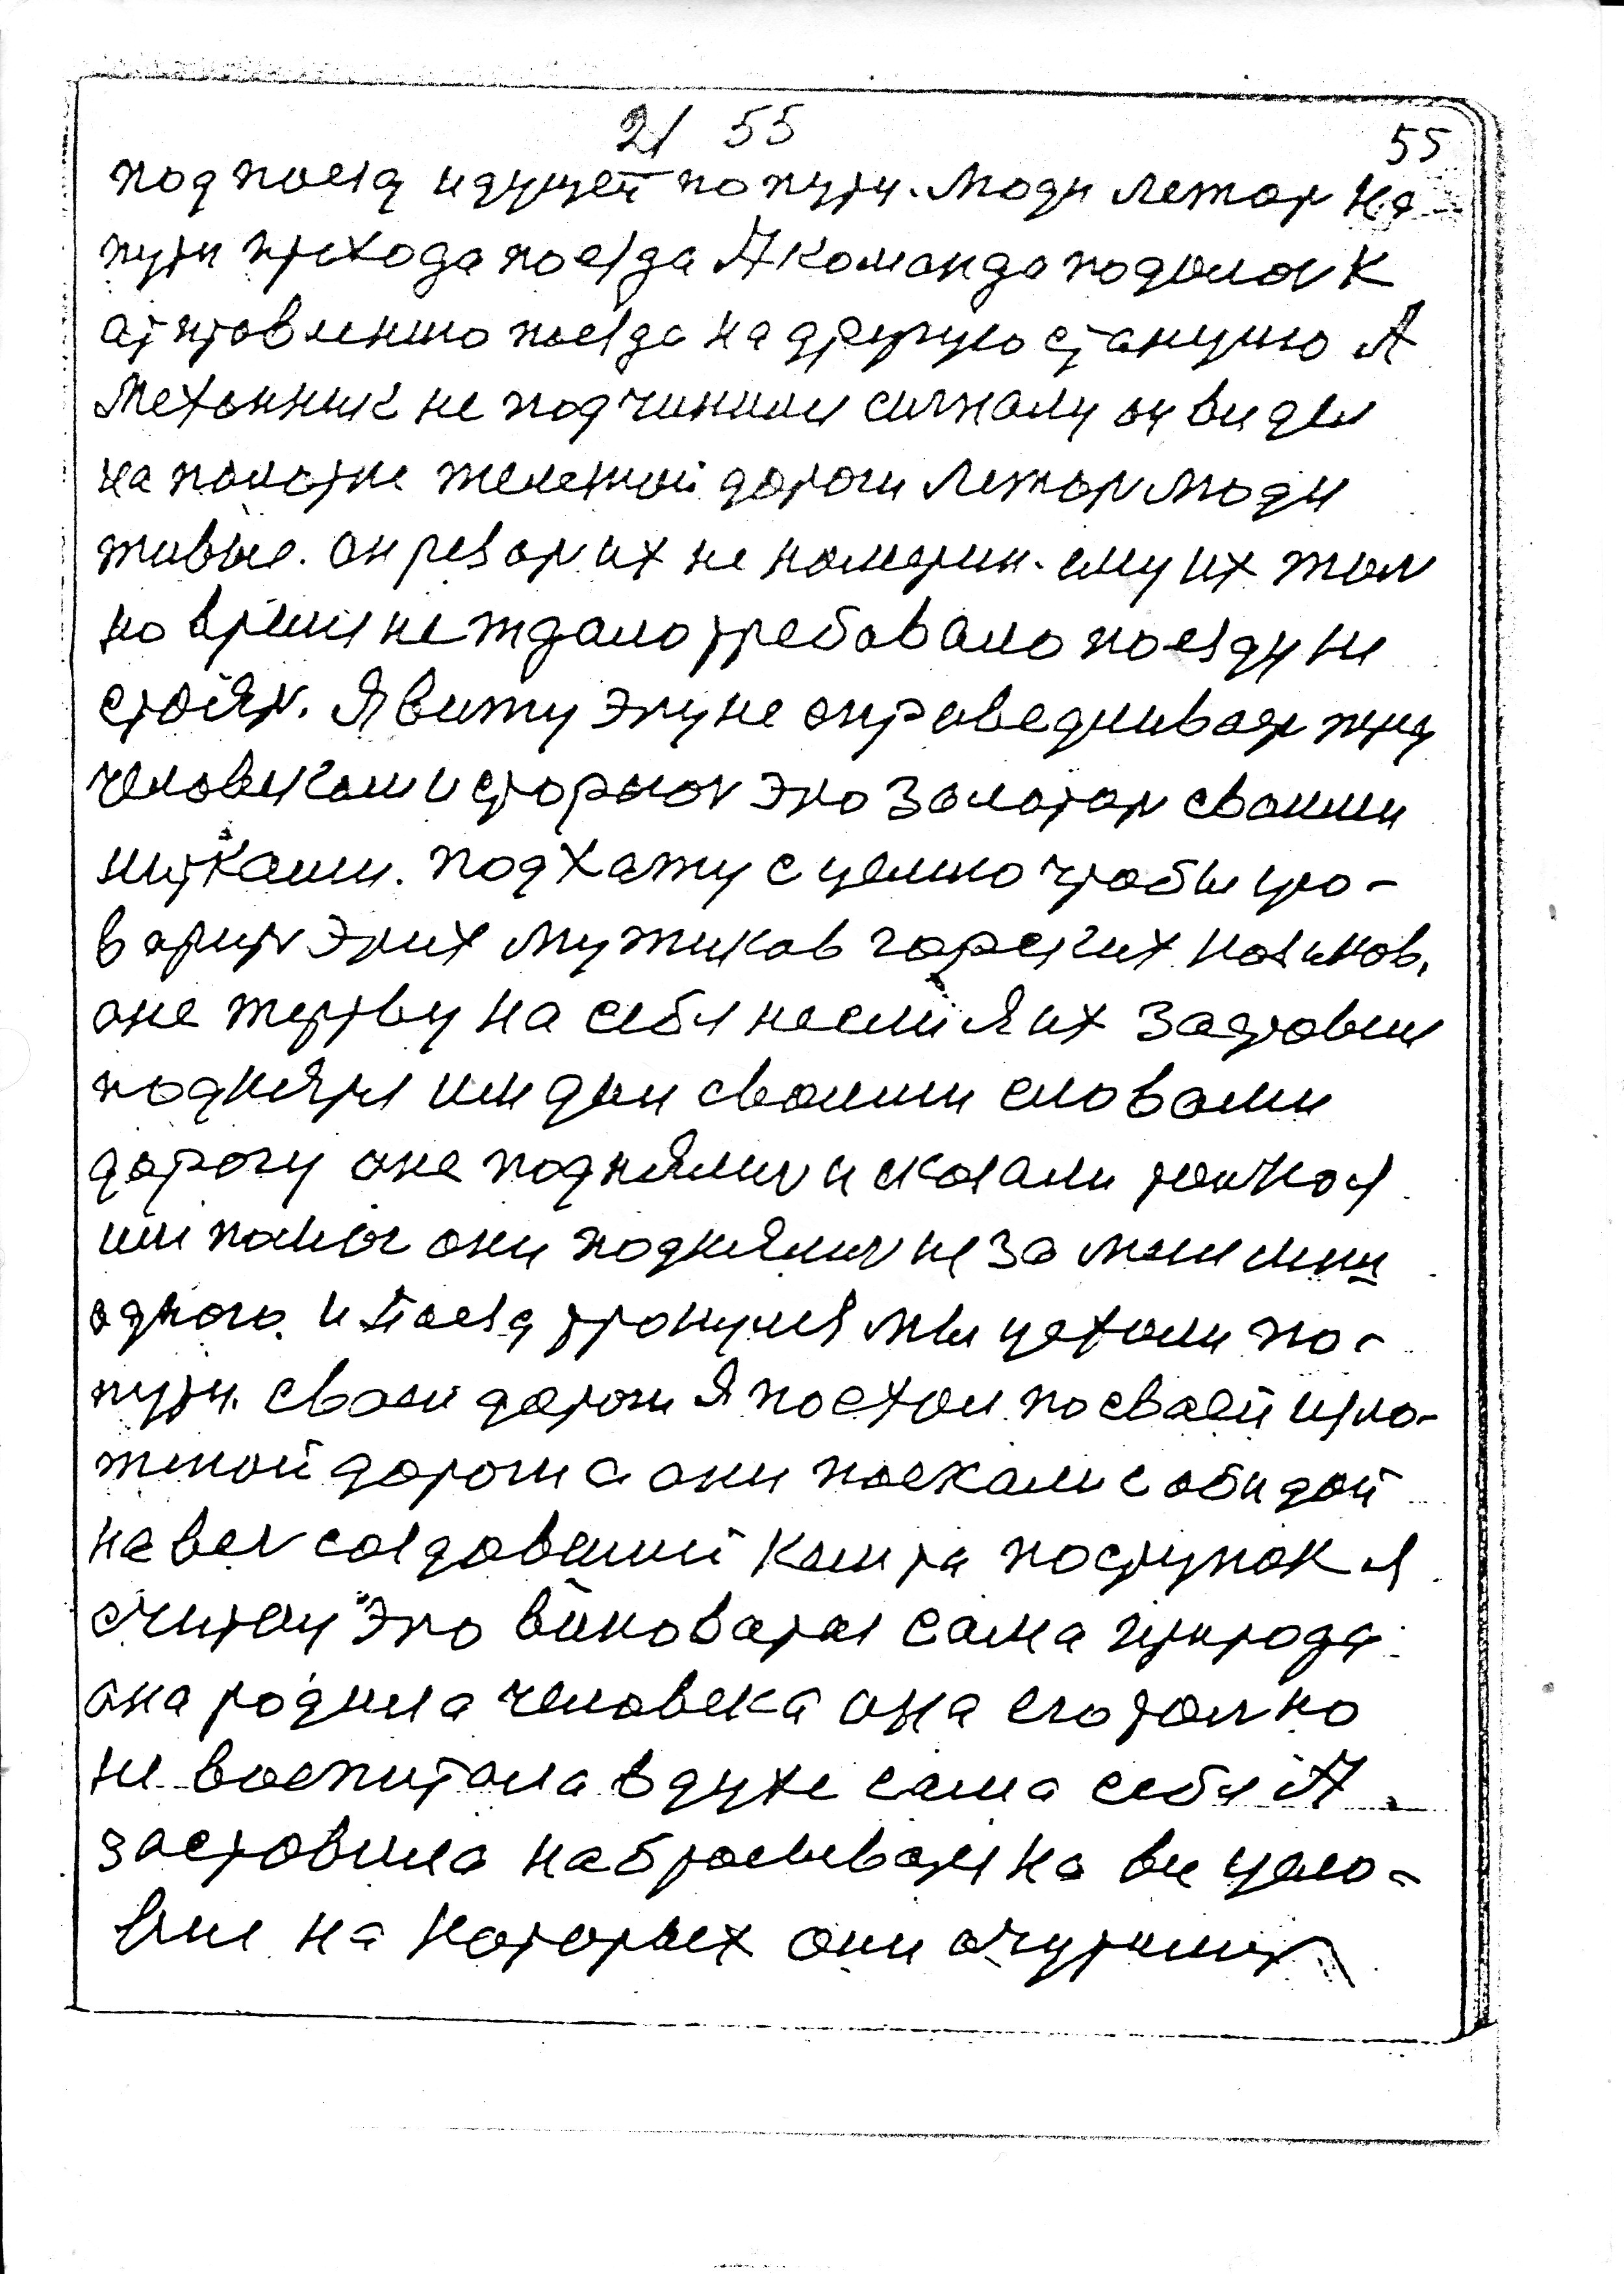 21 55
55
под поезд идущей по пути. Люди лежат на
пути прихода поезда А команда подалась к
атправлению поезда на другую станцию А
Механник не подчинился сигналу он видел
на полотне железной дороги лежат люди
живые. он резать их не намерин. ему их жаль
но время не ждало требовало поезду не
стоять. Я вижу эту не справедливасть
человеком и старалсь это залатать своими
нитками. подхажу с целью чтобы уго-
варить этих мужиков горских казаков.
оне жертву на себя несли Я их заставил
поднятся им дал своими словами
дарогу оне поднялись и сказали
они поднялись не за
одного. и Поезд тронулся мы уехали по-
пути. своей дароги Я поехал по сваей изло-
жной дароги а они поехали с обидой
на весь создавший поступок я
считаю это виноватая сама природа
она родила человека она его только
не воспитала в духе сама себя А
заставила набрасыватся на все усло-
вие на которых они очутились